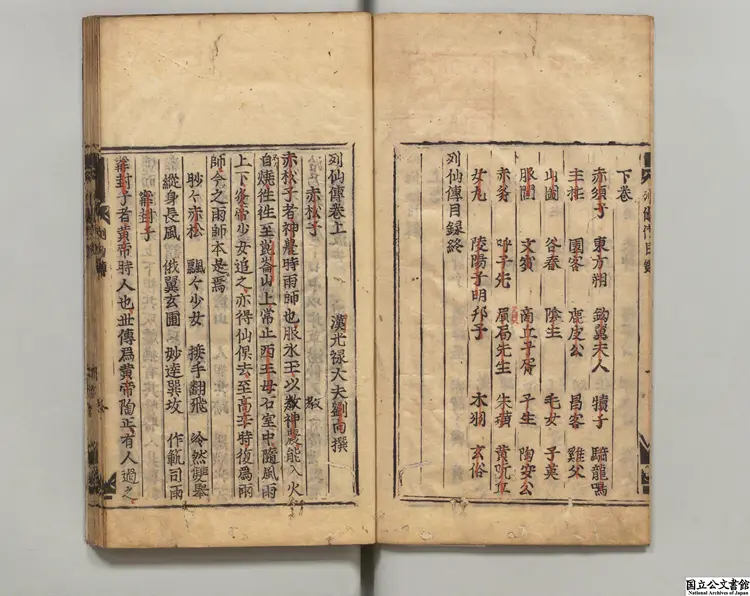 下卷
赤須子 東方朔 鉤翼夫人 犢子 騎龍鳴
主柱 園客 鹿皮公 昌容 谿父
山圖 谷春 陰生 毛女 子英
服閭 文賓 商丘子胥 子主 陶安公
赤斧 呼子先 負局先生 朱璜 黄阮丘
女丸 陵陽子明 邦子 木羽 玄俗
列仙傳目録終
列仙傳卷上
漢光禄大夫劉向撰
赤松子 教
赤松子者神農時雨師也服水玉以教神農能入火
自燒徃徃至崑崙山上常止西王母石室中隨風雨
上下炎帝少女追之亦得仙俱去至高辛時復爲雨
師今之雨師本是焉
眇々赤松 飄々少女 接手翻飛 泠然雙舉
縱身長風 俄翼玄圃 妙達巽坎 作範司雨
甯封子
甯封子者黄帝時人也世傳爲黄帝陶正有人過之
国立公文書館
National Archives of Japan